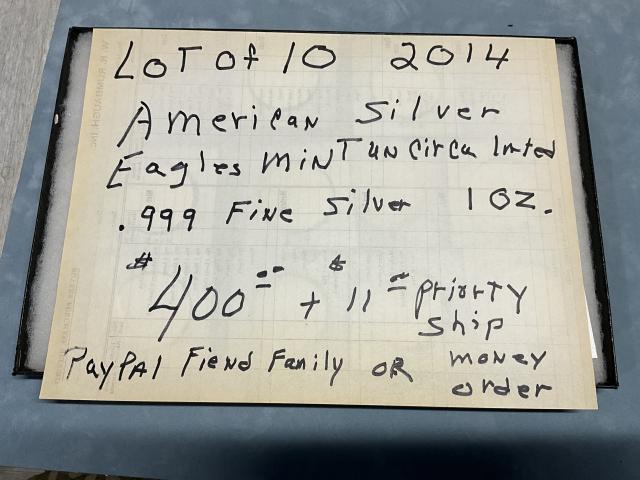 LOT OF 10 2014
American Silver
Eagles MINT UNCirculated
.999 Fine Silver 1 OZ.
$400⁰⁰ + $11⁰⁰ priorty
ship
PAYPAL Fiend Family OR money
order
W. R. RUMBAUGH, INC.